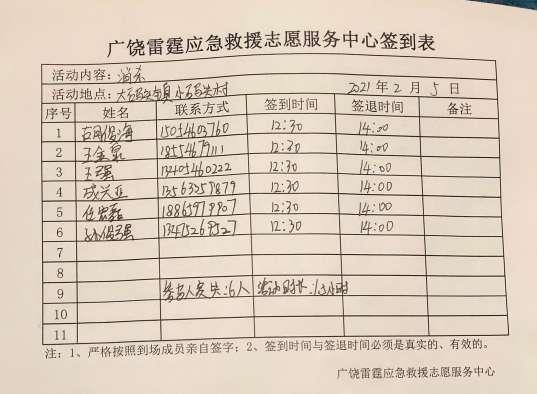 广饶雷霆应急救援志愿服务中心签到表
活动内容：消杀
活动地点：大码头镇 小码头村 2021年2月5日
序号 姓名 联系方式 签到时间 签退时间 备注
1 15054603760 12:30 14:00
2 王金泉 18554679111 12:30 14:00
3 王强 13405460222 12:30 14:00
4 成兴亚 13563257879 12:30 14:00
5 18865979907 12:30 14:00
6 13475269527 12:30 14:00
7
8
9 参加人员共：6人 活动时长：1.5小时
10
11
注：1、严格按照到场成员亲自签字；2、签到时间与签退时间必须是真实的、有效的。
广饶雷霆应急救援志愿服务中心